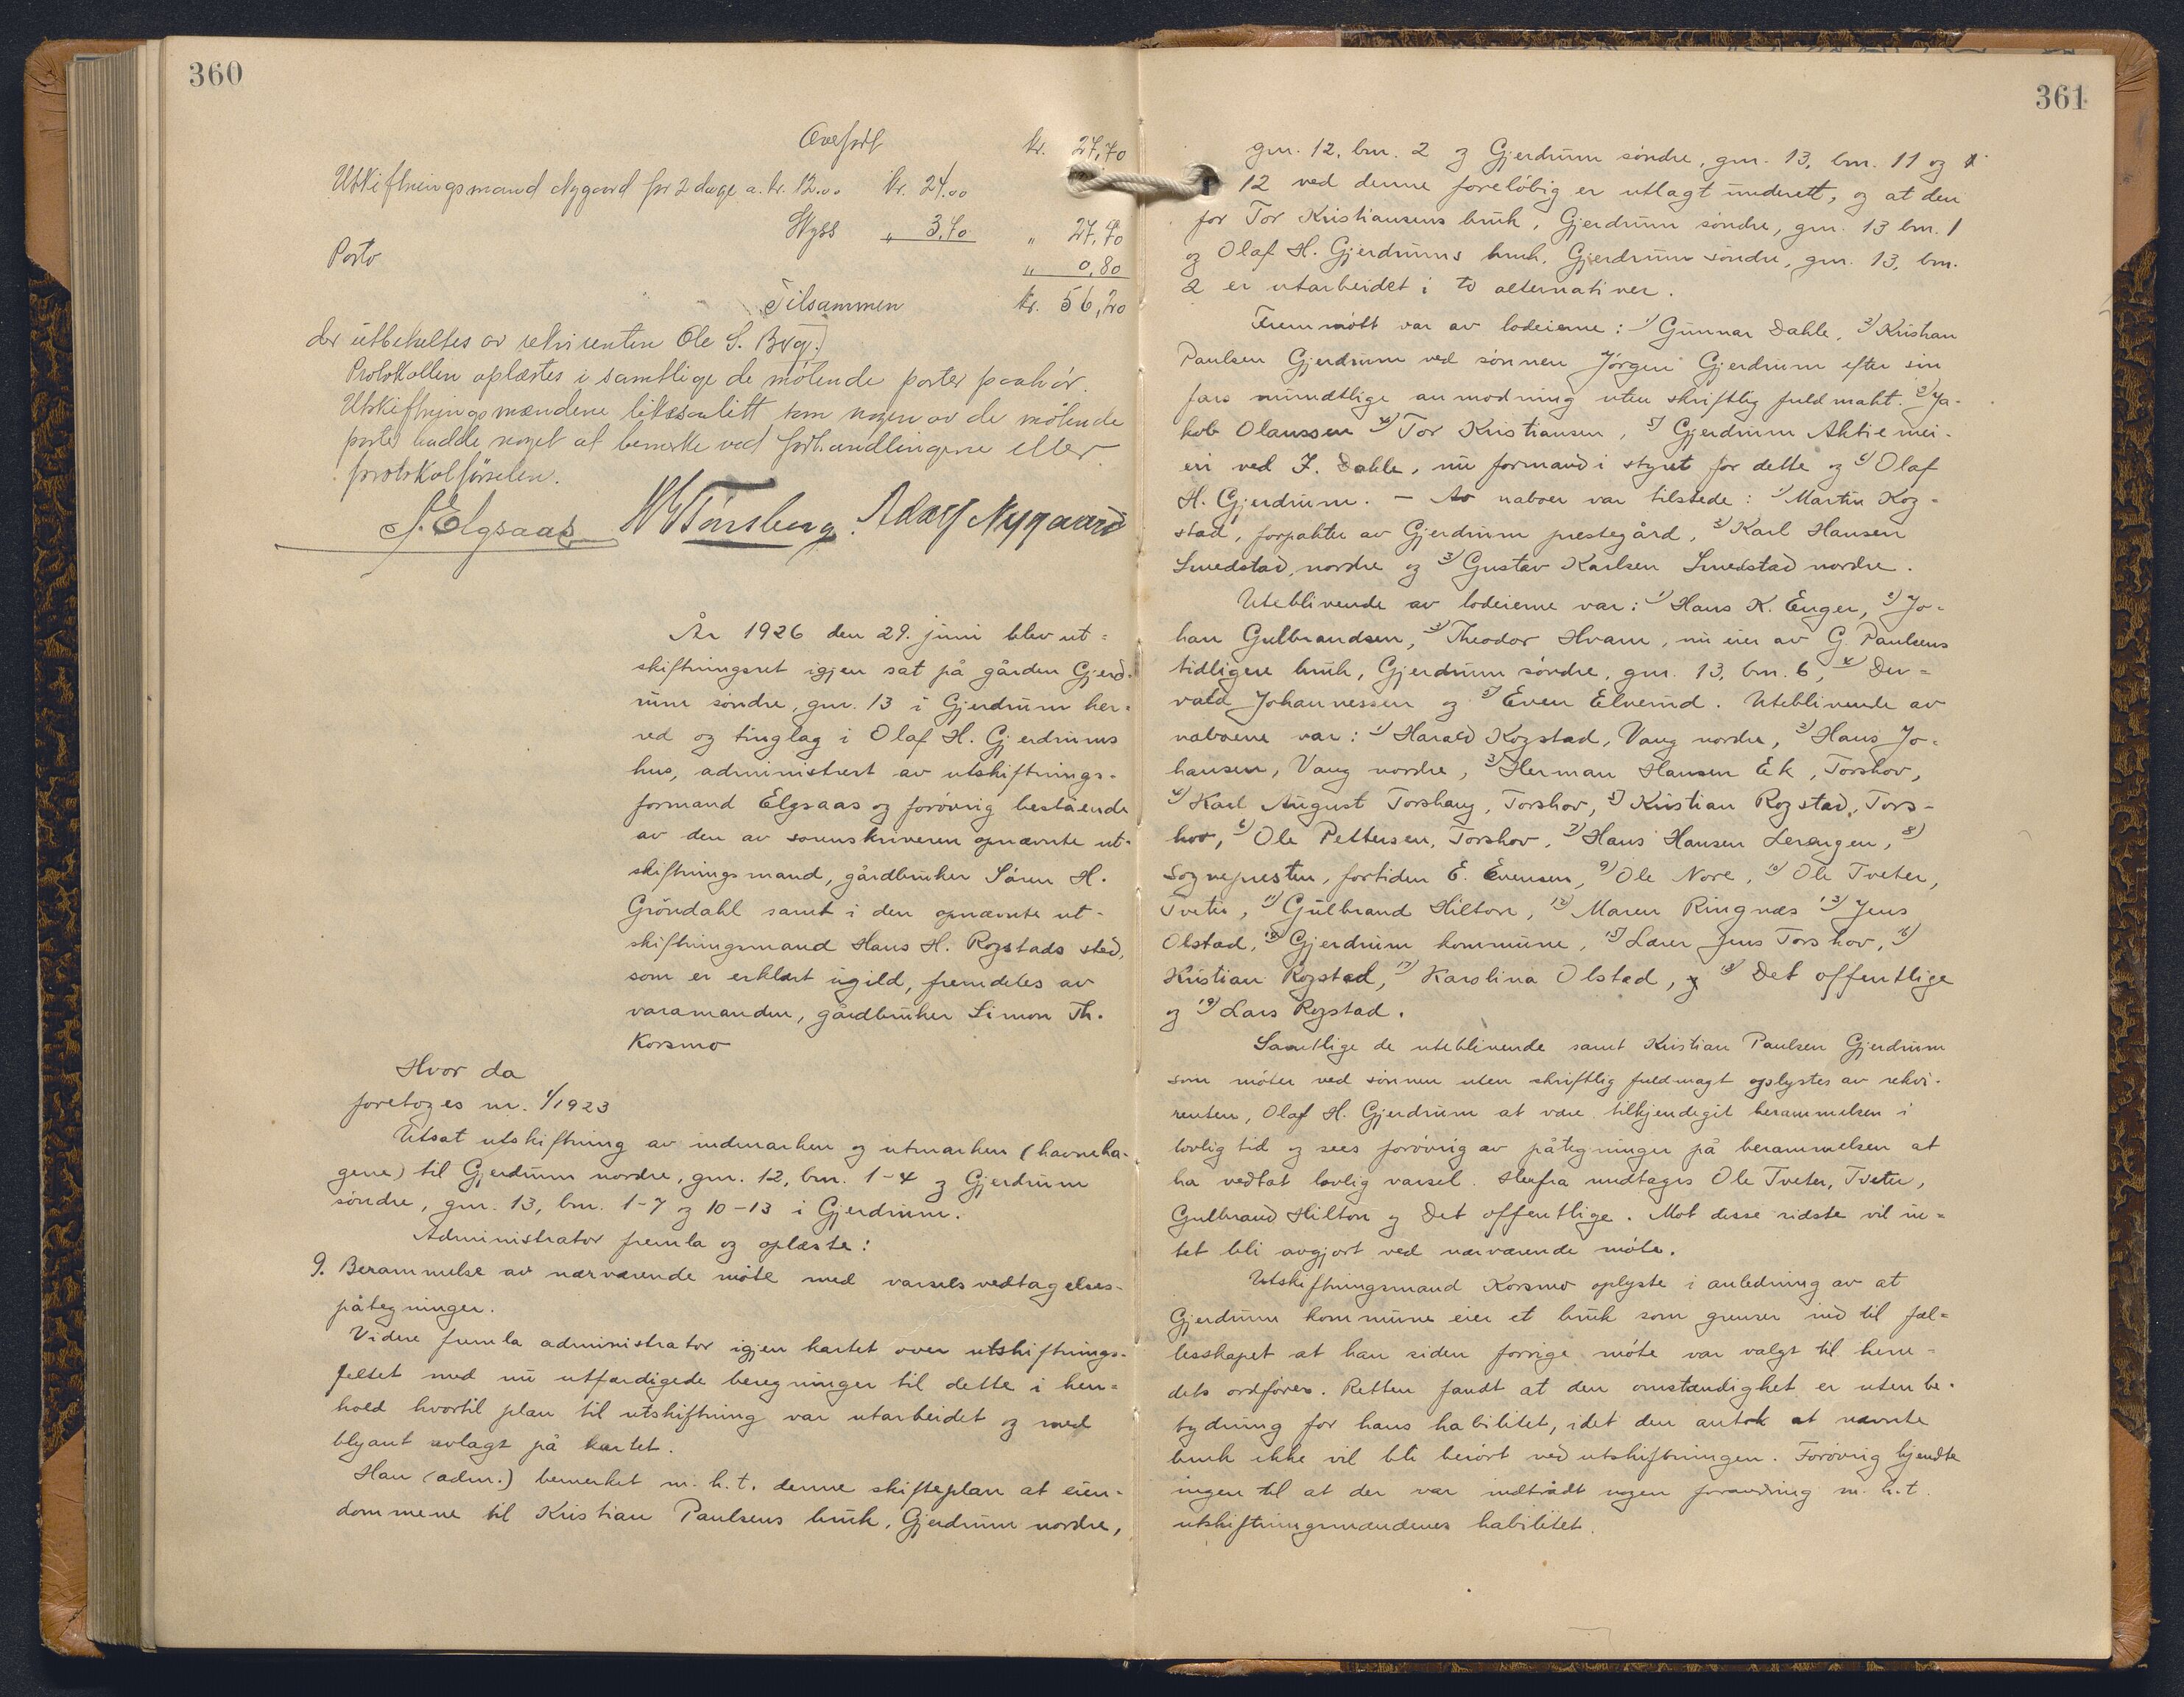 360
Overført kr. 27,70
Utskiftningsmand Nygaard for 2 dage a. kr. 12.00 kr. 24.00
Skyss " 3,70 " 27,70
Porto " 0,80
Tilsammen kr. 56,20
der utbetaltes av rekvirenten Ole S. Bryg.
Protokollen oplæstes i samtlige de møtende parter paahør.
Utskiftningsmændene likesaalitt som nogen av de møtende
parter hadde noget at bemerke ved forhandlingene eller
protokolførselen.
S. Elgsaas H Tønsberg. Adolf Nygaard
År 1926 den 29. juni blev ut-
skiftningsret igjen sat på gården Gjerd-
rum søndre, gnr. 13 i Gjerdrum her-
red og tinglag i Olaf H. Gjerdrums
hus, administrert av utskiftnings-
formand Elgsaas og forøvrig bestående
av den av sorenskriveren opnævnte ut-
skiftningsmand, gårdbruker Søren H.
Gröndahl samt i den opnævnte ut-
skiftningsmand Hans H. Rogstads sted,
som er erklært ugild, fremdeles av
varamanden, gårdbruker Simon Th.
Korsmo
Hvor da
foretoges nr. 1/1923
Utsat utskiftning av indmarken og utmarken (havneha-
gene) til Gjerdrum nordre, gnr. 12, bnr. 1-4 og Gjerdrum
søndre, gnr. 13, bnr. 1-7 og 10-13 i Gjerdrum.
Administrator fremla og oplæste:
9. Berammelse av nærværende møte med varselsvedtagelses-
påtegninger.
Videre fremla administrator igjen kartet over utskiftnings-
feltet med nu utfærdigede beregninger til dette i hen-
hold hvortil plan til utskiftning var utarbeidet og med
blyant avlagt på kartet.
Han (adm.) bemerket m.h.t. denne skifteplan at eien-
dommene til Kristian Paulsens bruk, Gjerdrum nordre,
361
gnr. 12, bnr. 2 og Gjerdrum søndre, gnr. 13, bnr. 11 og
12 ved denne foreløbig er utlagt underett, og at den
for Tor Kristiansens bruk, Gjerdrum søndre, gnr. 13 bnr. 1
og Olaf H. Gjerdrums bruk, Gjerdrum søndre, gnr. 13, bnr.
2 er utarbeidet i to alternativer.
Fremmøtt var av lodeierne: 1) Gunnar Dahle, 2) Kristian
Paulsen Gjerdrum ved sønnen Jörgen Gjerdrum efter sin
fars mundtlige anmodning uten skriftlig fuldmakt. 3) Ja-
kob Olaussen 4) Tor Kristiansen, 5) Gjerdrum Aktiemei-
eri ved J. Dahle, nu formand i styret for dette og 6) Olaf
H. Gjerdrum. - Av naboer var tilstede: 1) Martin Rog-
stad, forpakter av Gjerdrum prestegård, 2) Karl Hansen
Smedstad, nordre og 3) Gustav Karlsen Smedstad nordre.
Uteblivende av lodeierne var: 1) Hans K. Enger, 2) Jo-
han Gulbrandsen, 3) Theodor Hvam, nu eier av G. Paulsens
tidligere bruk, Gjerdrum søndre, gnr. 13, bnr. 6, 4) Der-
vald Johannessen og 5) Even Elverud. Uteblivende av
naboene var: 1) Harald Rogstad, Vaug nordre, 2) Hans Jo-
hansen, Vaug nordre, 3) Herman Hansen Ek, Torshov,
4) Karl August Torshaug, Torshov, 5) Kristian Rogstad, Tors-
hov, 6) Ole Pettersen, Torshov, 7) Hans Hansen Lerangen, 8)
Sognepresten, fortiden E. Evensen, 9) Ole Nore, 10) Ole Tveter,
Tveter, 11) Gulbrand Hilton, 12) Maren Ringnæs 13) Jens
Olstad, 14) Gjerdrum kommune, 15) Lærer Jens Torshov, 16)
Kristian Rogstad, 17) Karolina Olstad, 18) Det offentlige
og 19) Lars Rogstad.
Samtlige de uteblivende samt Kristian Paulsen Gjerdrum
som møter ved sønnen uten skriftlig fuldmagt oplystes av rekvi-
renten, Olaf H. Gjerdrum at være tilkjendegit berammelsen i
lovlig tid og sees forøvrig av påtegninger på berammelsen at
ha vedtat lovlig varsel. Herfra undtages Ole Tveter, Tveter,
Gulbrand Hilton og Det offentlige. Mot disse sidste vil in-
tet bli avgjort ved nærværende møte.
Utskiftningsmand Korsmo oplyste i anledning av at
Gjerdrum kommune eier et bruk som grenser ind til fæl-
lesskapet at han siden forrige møte var valgt til herre-
dets ordfører. Retten fandt at den omstændighet er uten be-
tydning for hans habilitet, idet den antok at nævnte
bruk ikke vil bli berørt ved utskiftningen. Forøvrig kjendte
ingen til at der var indtrådt nogen forandring m.h.t.
utskiftningsmændenes habilitet.